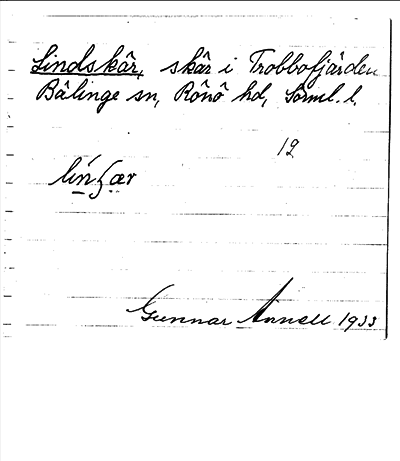 Lindskär, skär i Trobbofjärden
Bälinge sn, Rönö hd, Sörml. l.
12
Gunnar Annell 1933